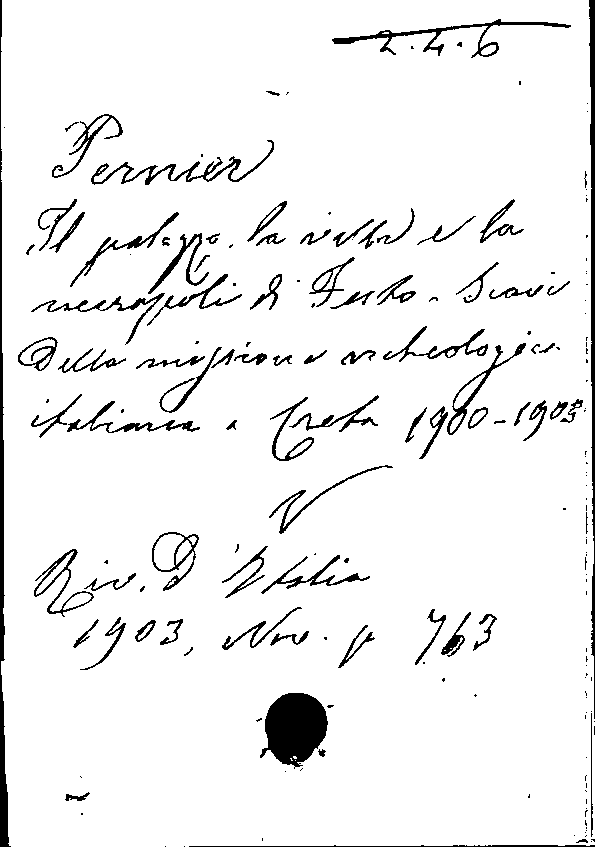 2.4.6
Pernier
Il palazzo, la villa e la
necropoli di Festo - Scavi
Della missione archeologica
italiana a Creta 1900-1903
V
Riv. D'Italia
1903, Nov. p 763